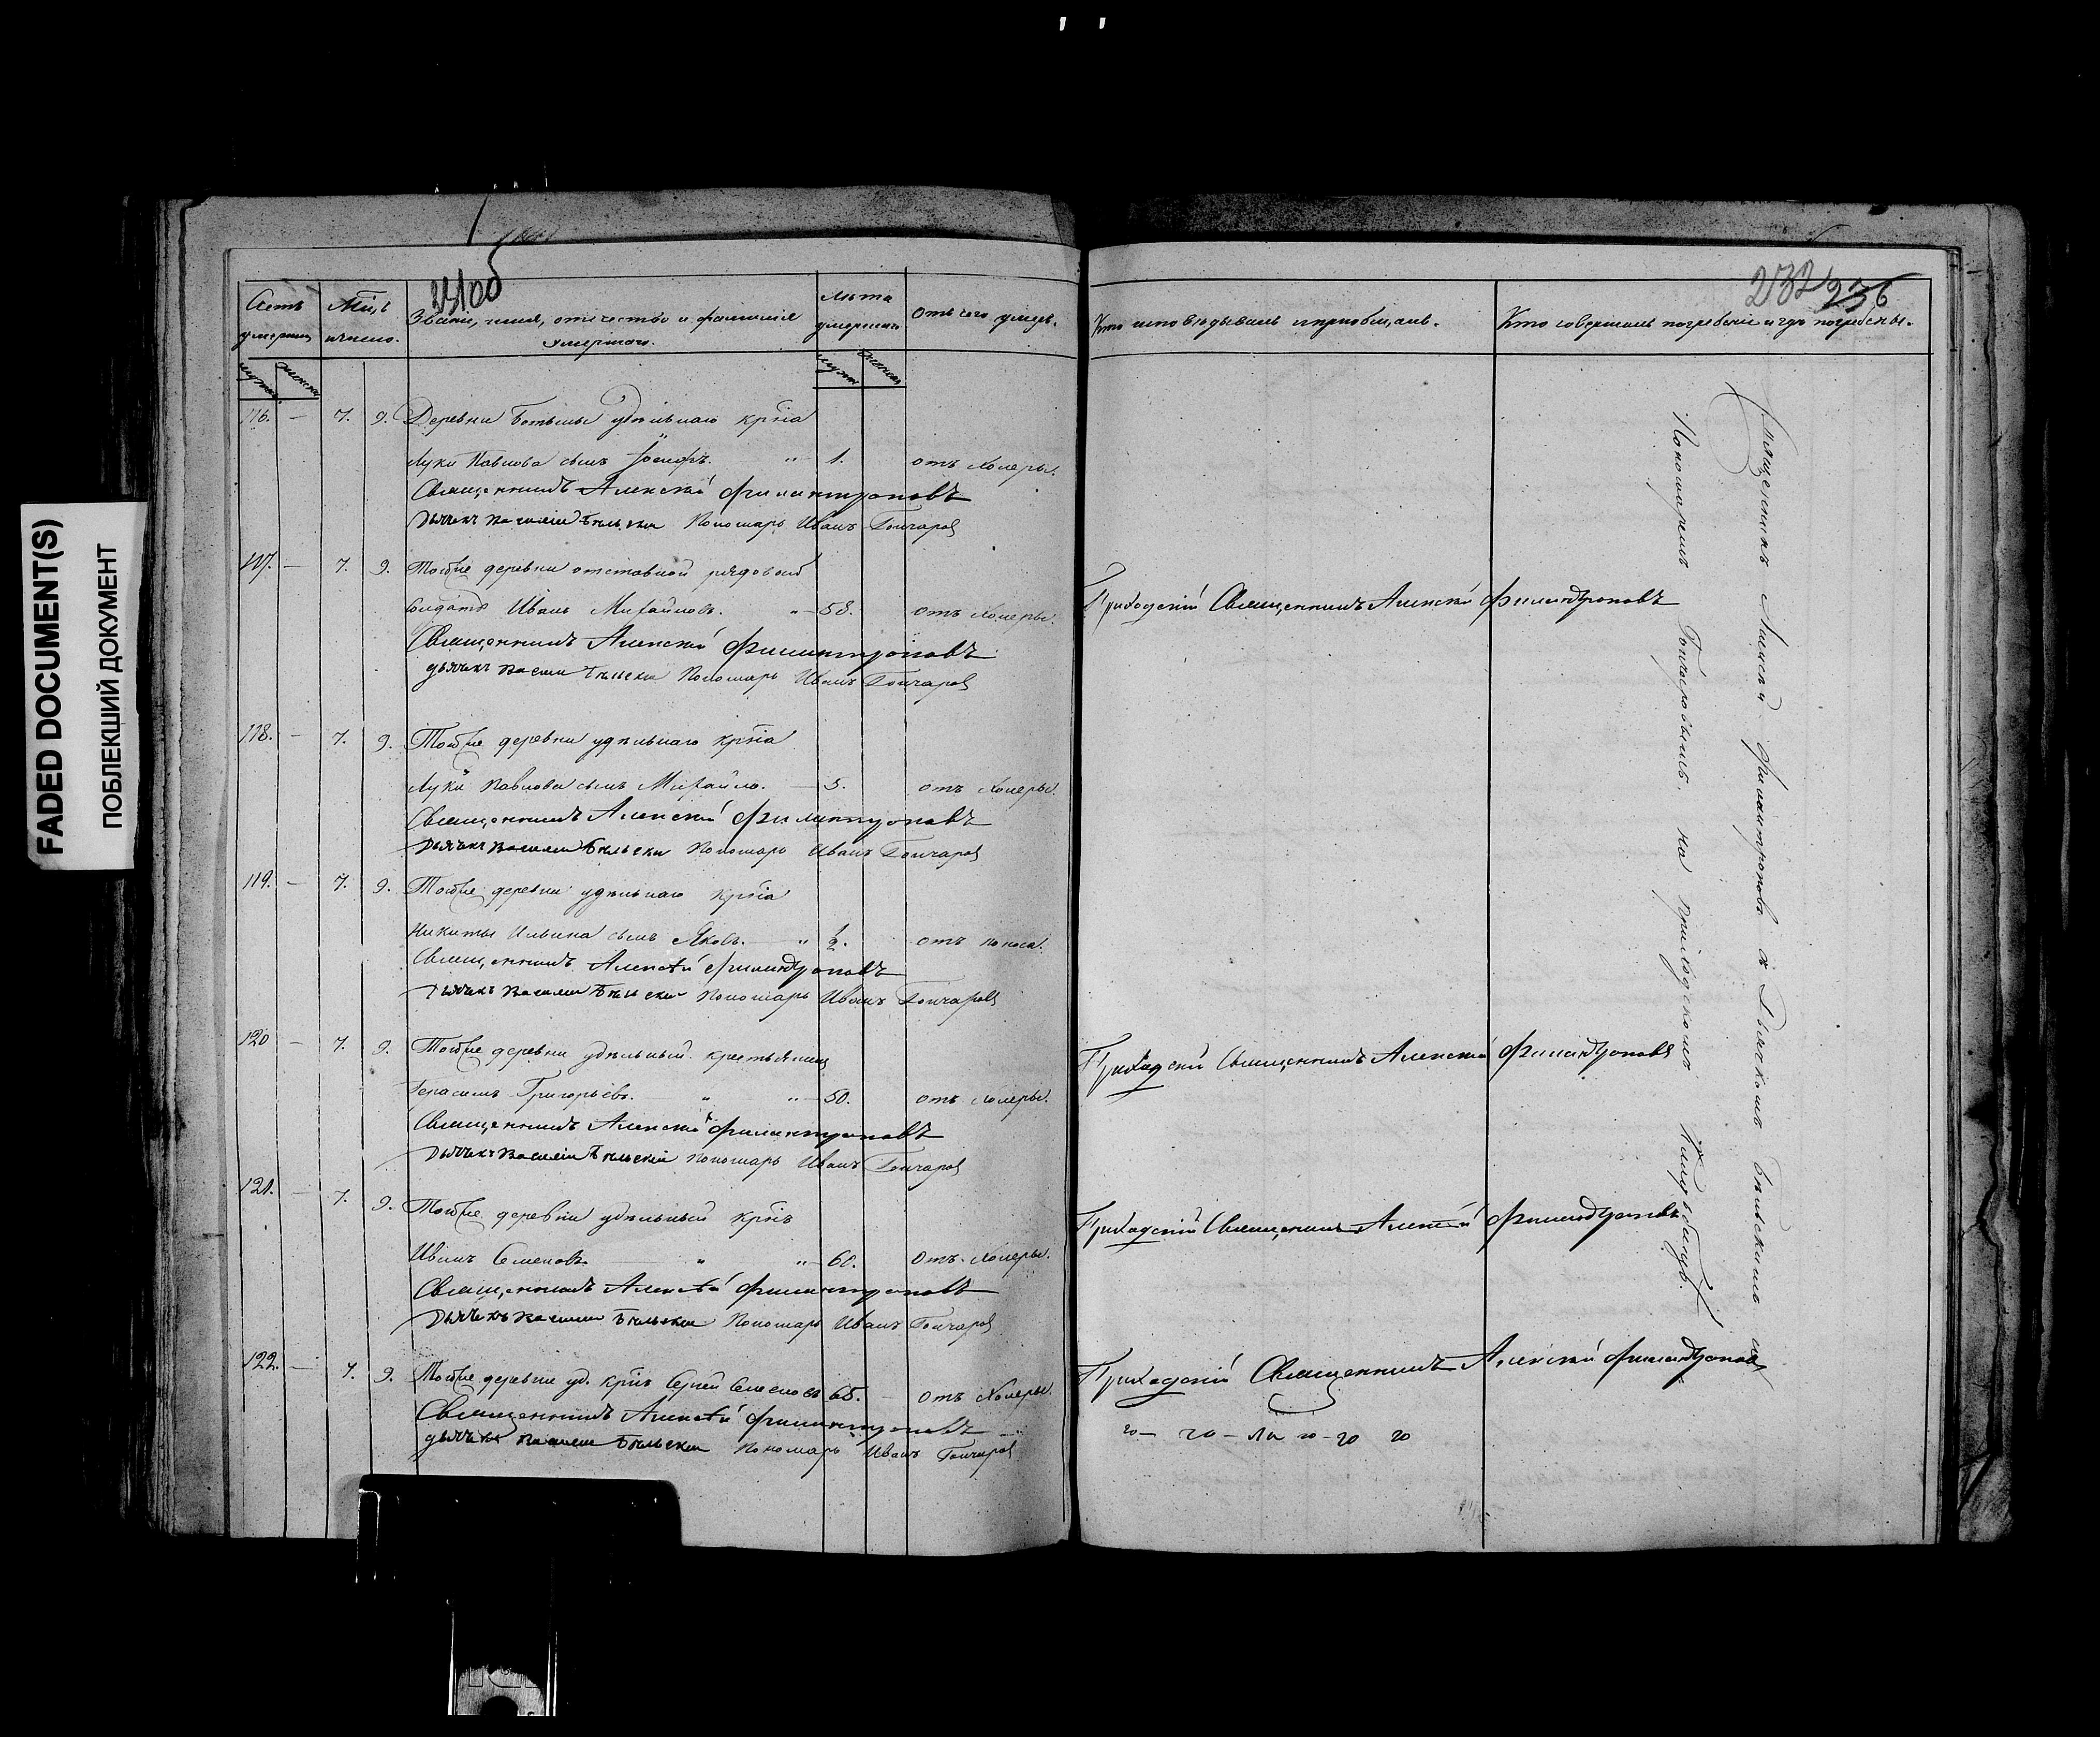 FADED DOCUMENT(S)
ПОБЛЕКШИЙ ДОКУМЕНТ
231об
232 236
Счетъ умершихъ
Мѣс,ъ и число.
Званіе, имя, отчество и фамилія умершаго.
Лѣта умершаго
Отъ чего умеръ.
Кто исповѣдывалъ и пріобщалъ.
Кто совершалъ погребеніе и гдѣ погребены.
116. — 7. 9. Деревни Ботьмы удѣльнаго крт̃на
Луки Павлова сынъ Іосифъ. „ 1. отъ холеры.
Священникъ Алексѣй Филантроповъ
Дьячекъ Василій Бѣльскій Пономарь Иванъ Гончаровъ
117. — 7. 9. Тойже деревни отставной рядовой
Солдатъ Иванъ Михайловъ. „ 58. отъ холеры.
Приходскій Священникъ Алексѣй Филантроповъ
Священникъ Алексѣй Филантроповъ
дьячекъ Василій Бѣльскій Пономарь Иванъ Гончаровъ
118. — 7. 9. Тойже деревни удѣльнаго крт̃на
Луки Павлова сынъ Михайло. — 5. отъ холеры.
Священникъ Алексѣй Филантроповъ
Дьячекъ Василій Бѣльскій Пономарь Иванъ Гончаровъ
119. — 7. 9. Тойже деревни удѣльнаго крт̃на
Никиты Ильина сынъ Яковъ. — „ ½. отъ поноса.
Священникъ Алексѣй Филантроповъ
Дьячекъ Василій Бѣльскій Пономарь Иванъ Гончаровъ
120 — 7. 9. Тойже деревни удѣльный крестьянинъ
Герасимъ Григорьевъ. „ „ 50. отъ холеры.
Приходскій Священникъ Алексѣй Филантроповъ
Священникъ Алексѣй Филантроповъ
Дьячекъ Василій Бѣльскій Пономарь Иванъ Гончаровъ
121. — 7. 9. Тойже деревни удѣльный крт̃нъ
Иванъ Семеновъ. „ „ 60. Отъ холеры.
Приходскій Священникъ Алексѣй Филантроповъ
Священникъ Алексѣй Филантроповъ
Дьячекъ Василій Бѣльскій Пономарь Иванъ Гончаровъ
122. — 7. 9. Тойже деревни уд. крт̃нъ Сергей Семеновъ 65. отъ холеры.
Приходскій Священникъ Алексѣй Филантроповъ
Священникъ Алексѣй Филантроповъ
дьячекъ Василій Бѣльскій Пономарь Иванъ Гончаровъ
Священникъ Алексѣй Филантроповъ съ Дьячкомъ Бѣльскимъ и
Пономаремъ Гончаровымъ. на приходскомъ Кладбищѣ.